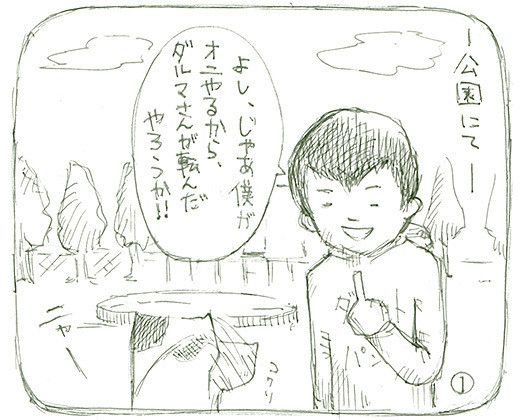 ー公園にてー
よし、じゃあ僕が
オニやるから、
ダルマさんが転んだ
やろうか!!
コクリ
ニャー
①